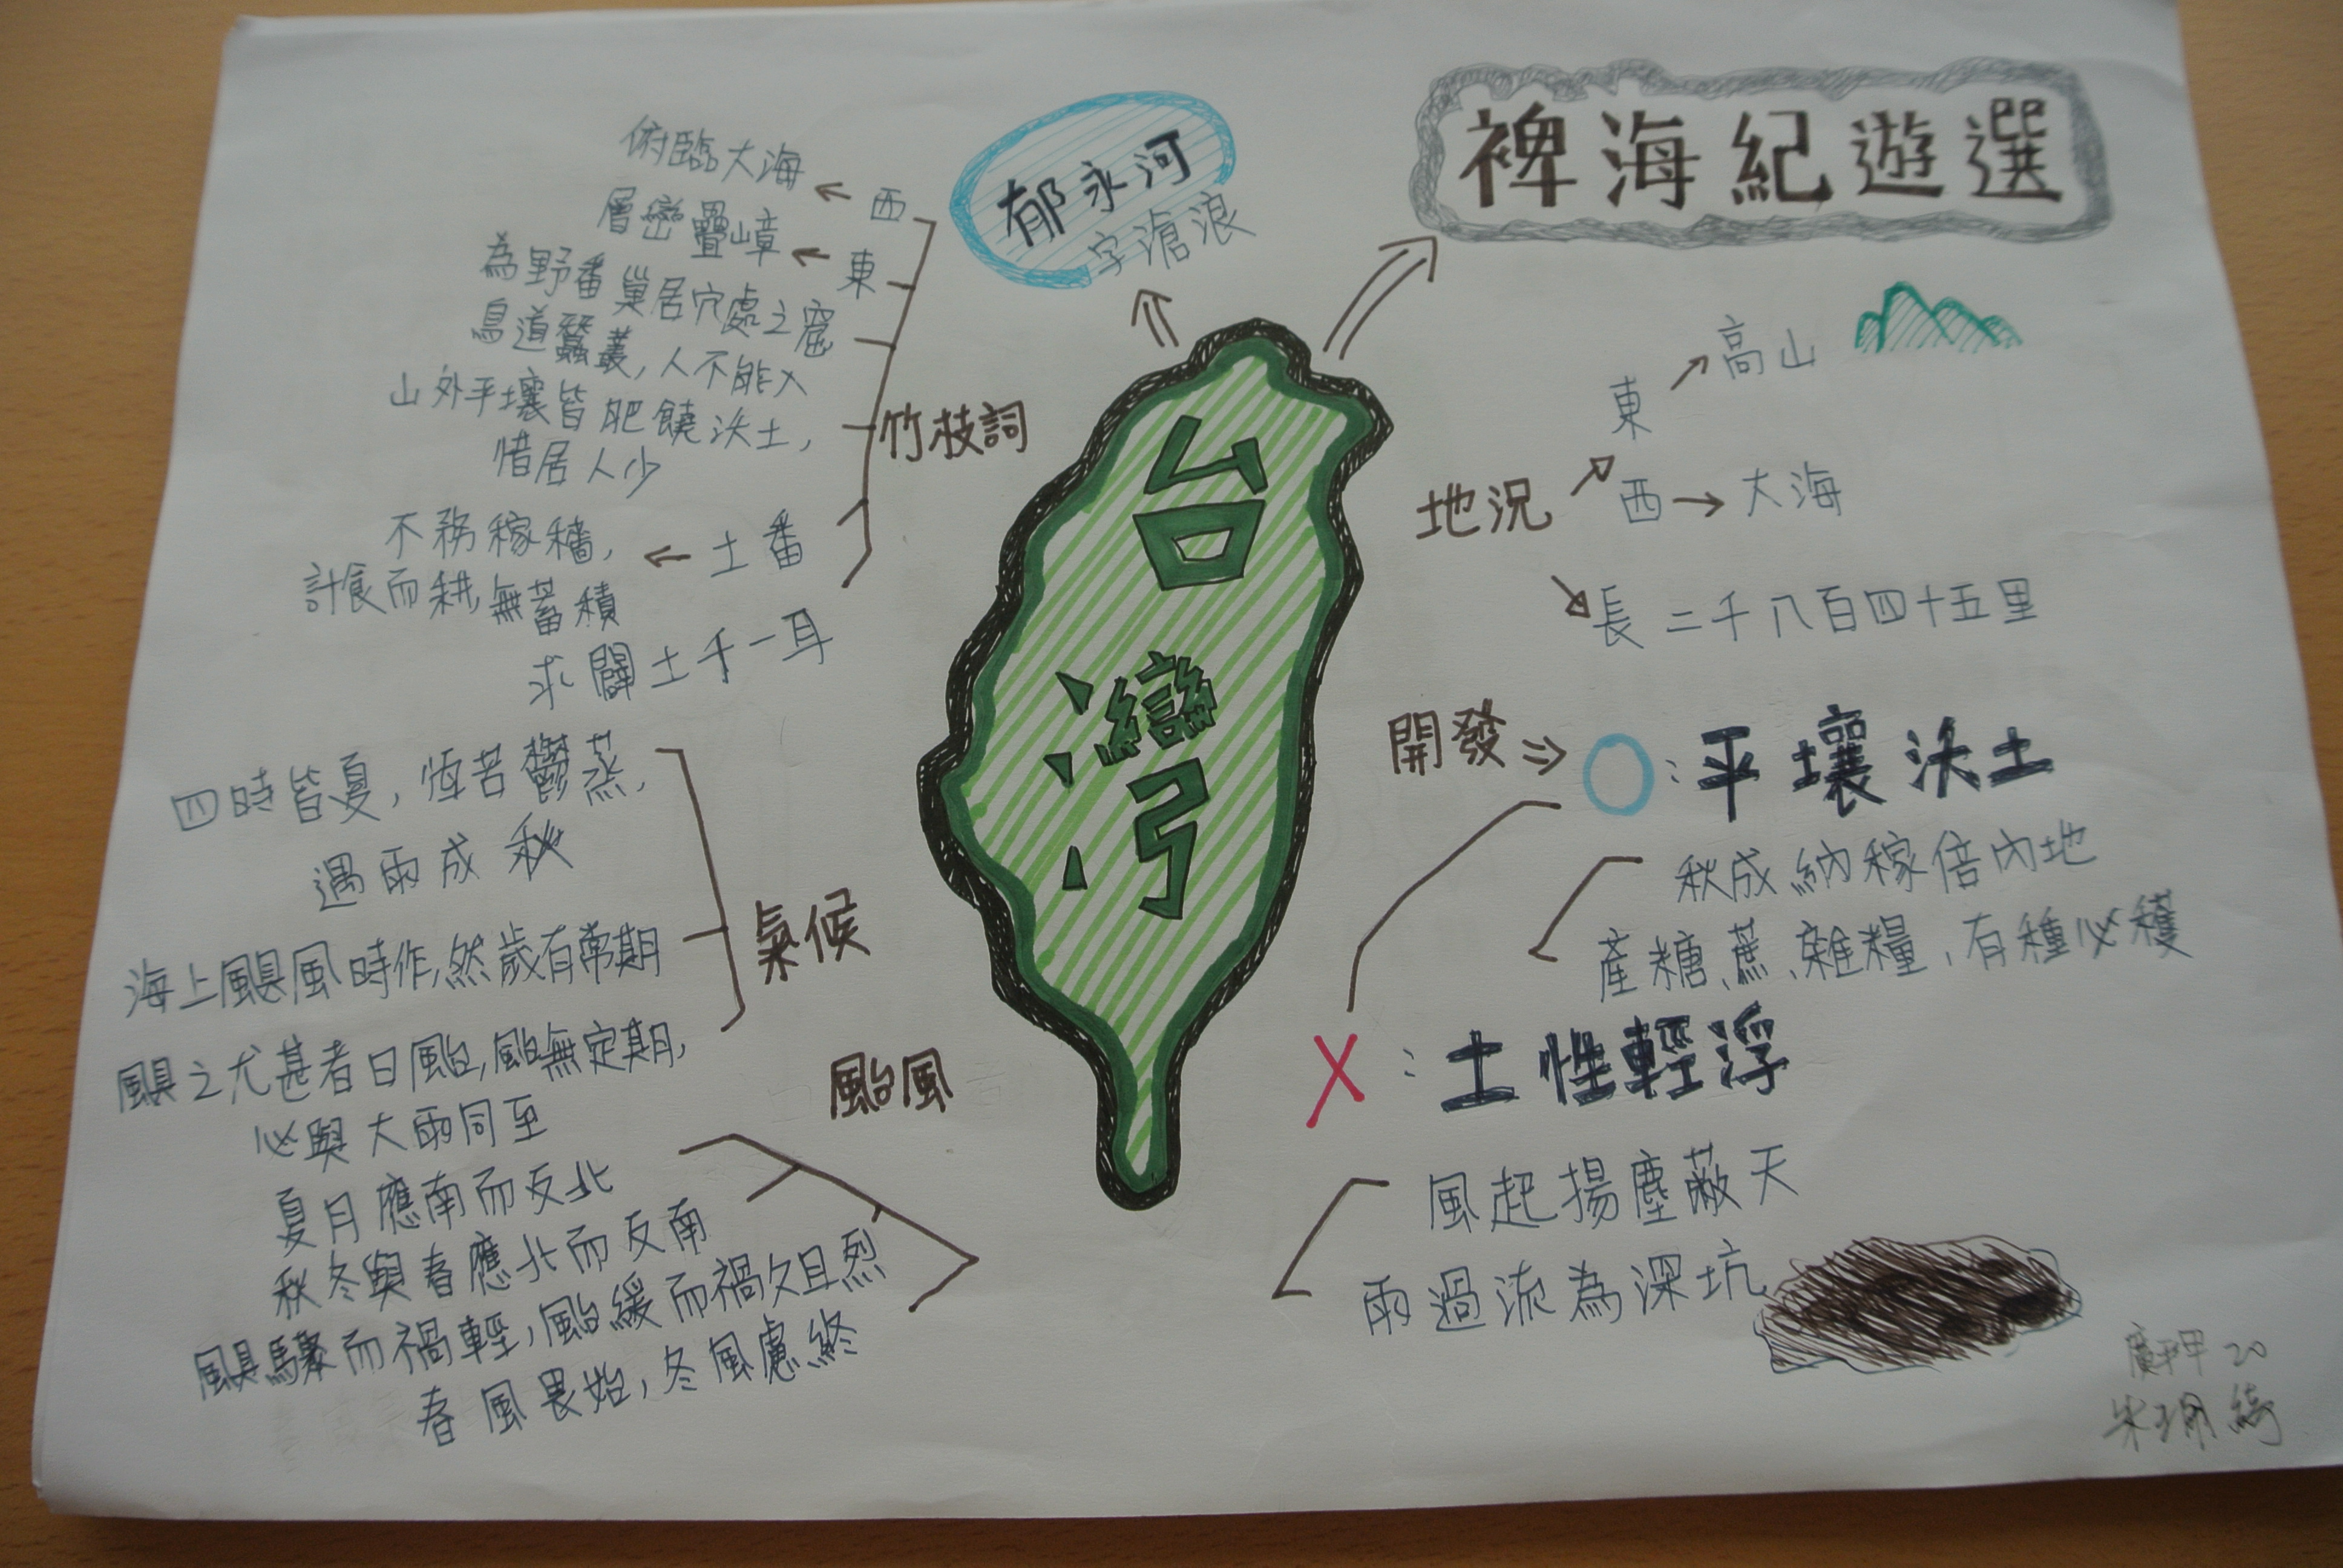 裨海紀遊選
郁永河
字滄浪
台灣
竹枝詞
西
俯臨大海
東
層巒疊嶂
為野番巢居穴處之窟
鳥道蠶叢,人不能入
山外平壤皆肥饒沃土,
惜居人少
土番
不務稼穡,
計食而耕,無蓄積
求闢土千一耳
氣候
四時皆夏,恆苦鬱蒸,
遇雨成秋
海上颶風時作,然歲有常期
颶之尤甚者曰颱,颱無定期,
必與大雨同至
颱風
夏月應南而反北
秋冬與春應北而反南
颶驟而禍輕,颱緩而禍久且烈
春風畏始,冬風慮終
地況
東
高山
西
大海
長二千八百四十五里
開發
:平壤沃土
秋成納稼倍內地
產糖、蔗、雜糧,有種必穫
X:土性輕浮
風起揚塵蔽天
雨過流為深坑
20